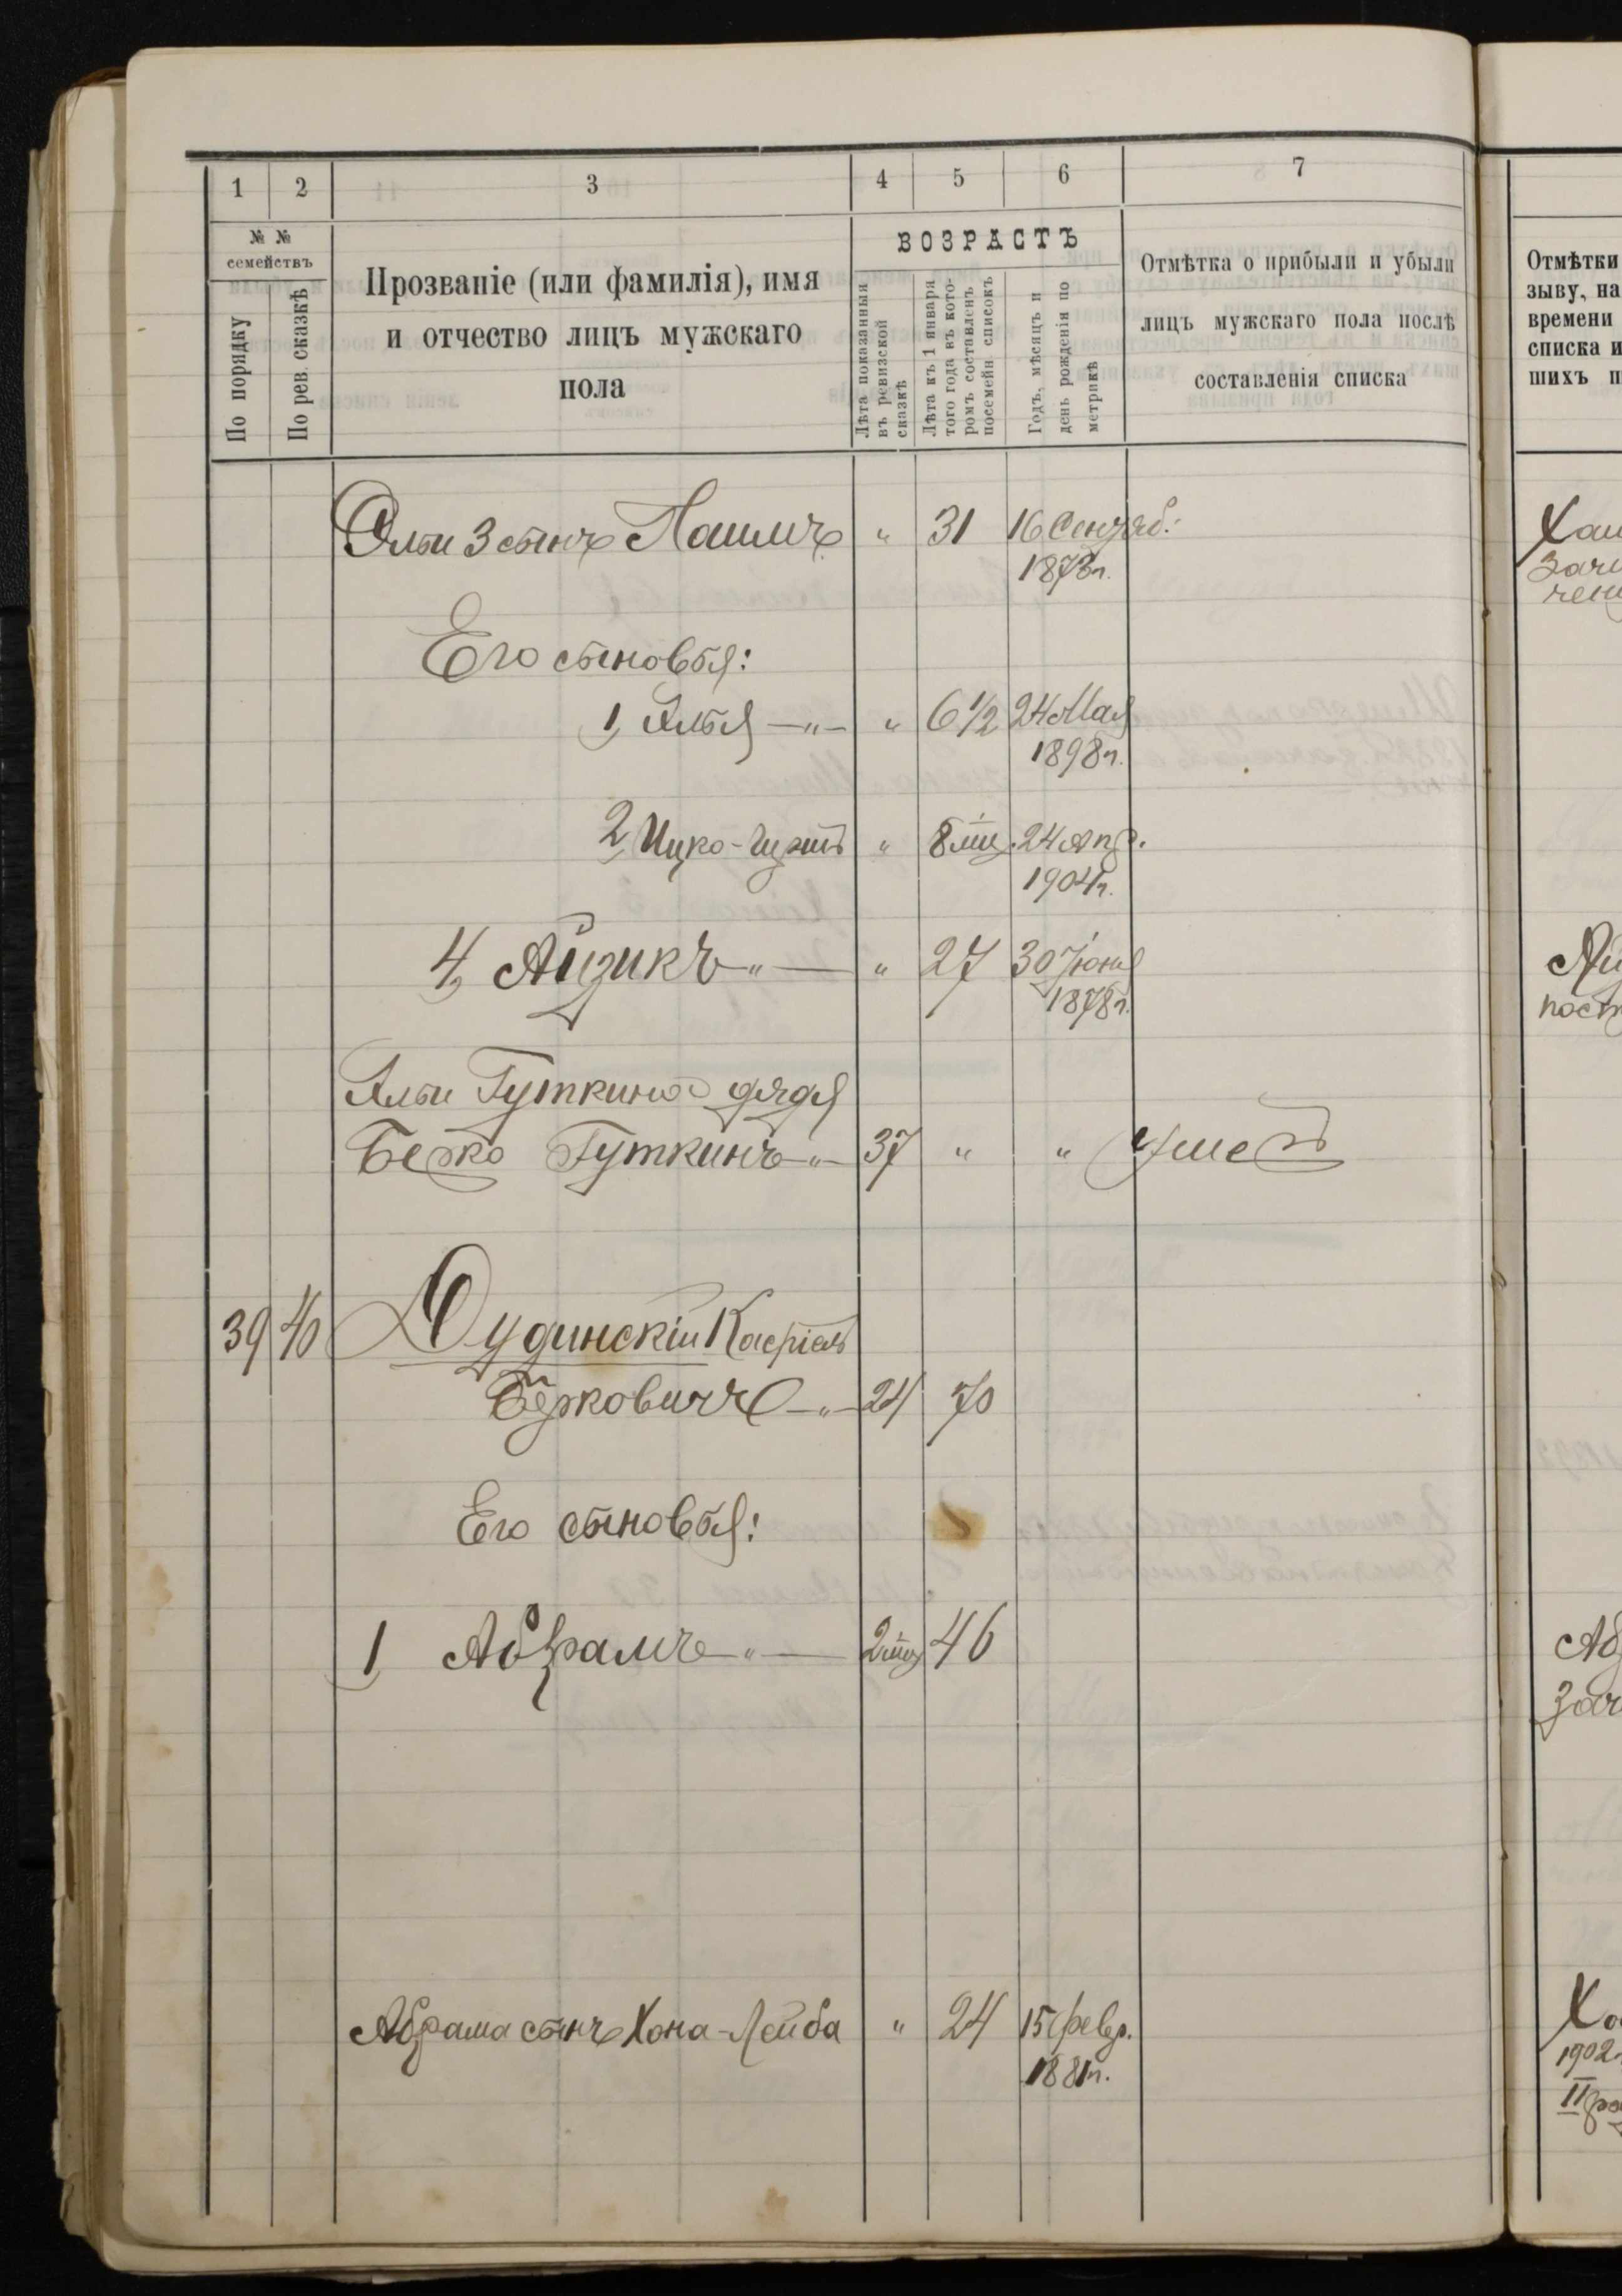 1 2 3 4 5 6 7
№ №
семействъ
По порядку
По рев. сказкѣ
Прозваніе (или фамилія), имя
и отчество лицъ мужскаго
пола
ВОЗРАСТЪ
Лѣта показанныя
въ ревизской
сказкѣ
Лѣта къ 1 января
того года въ кото-
ромъ составленъ
посемейн. списокъ
Годъ, мѣсяцъ и
день рожденія по
метрикѣ
Отмѣтка о прибыли и убыли
лицъ мужскаго пола послѣ
составленія списка
Эльи 3 сынъ " 31 16 Сентяб.
1873 г.
Его сыновья:
1, Элья —"— " 6 ½ 24 Мая
1898 г.
2, Ицко- " 8 мц. 24 Апр.
1904 г.
4, Айзикъ " — " 27 30 Іюня
1878 г.
Эльи Гуткина дядя
Берко Гуткинъ " 37 " " Умеръ
39 40 Дудинскій Касріель
Берковичъ —"— 24 70
Его сыновья:
1, Абрамъ " — 2 мц 46
Абрама сынъ Хона-Лейба " 24 15 Февр.
1881 г.
Отмѣтки
зыву, на
времени
списка и
шихъ п